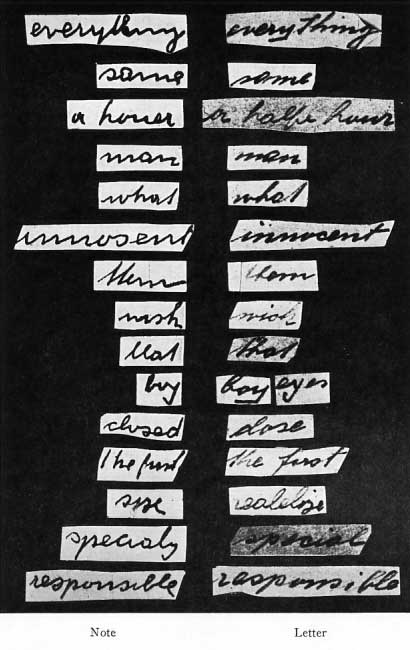 everything everything
same same
a houer a halfe hour
man man
what what
innosent innocent
them them
wish wich
that that
boy boy eyes
closed close
the first the first
size realize
specialy special
responsible responsible
Note Letter